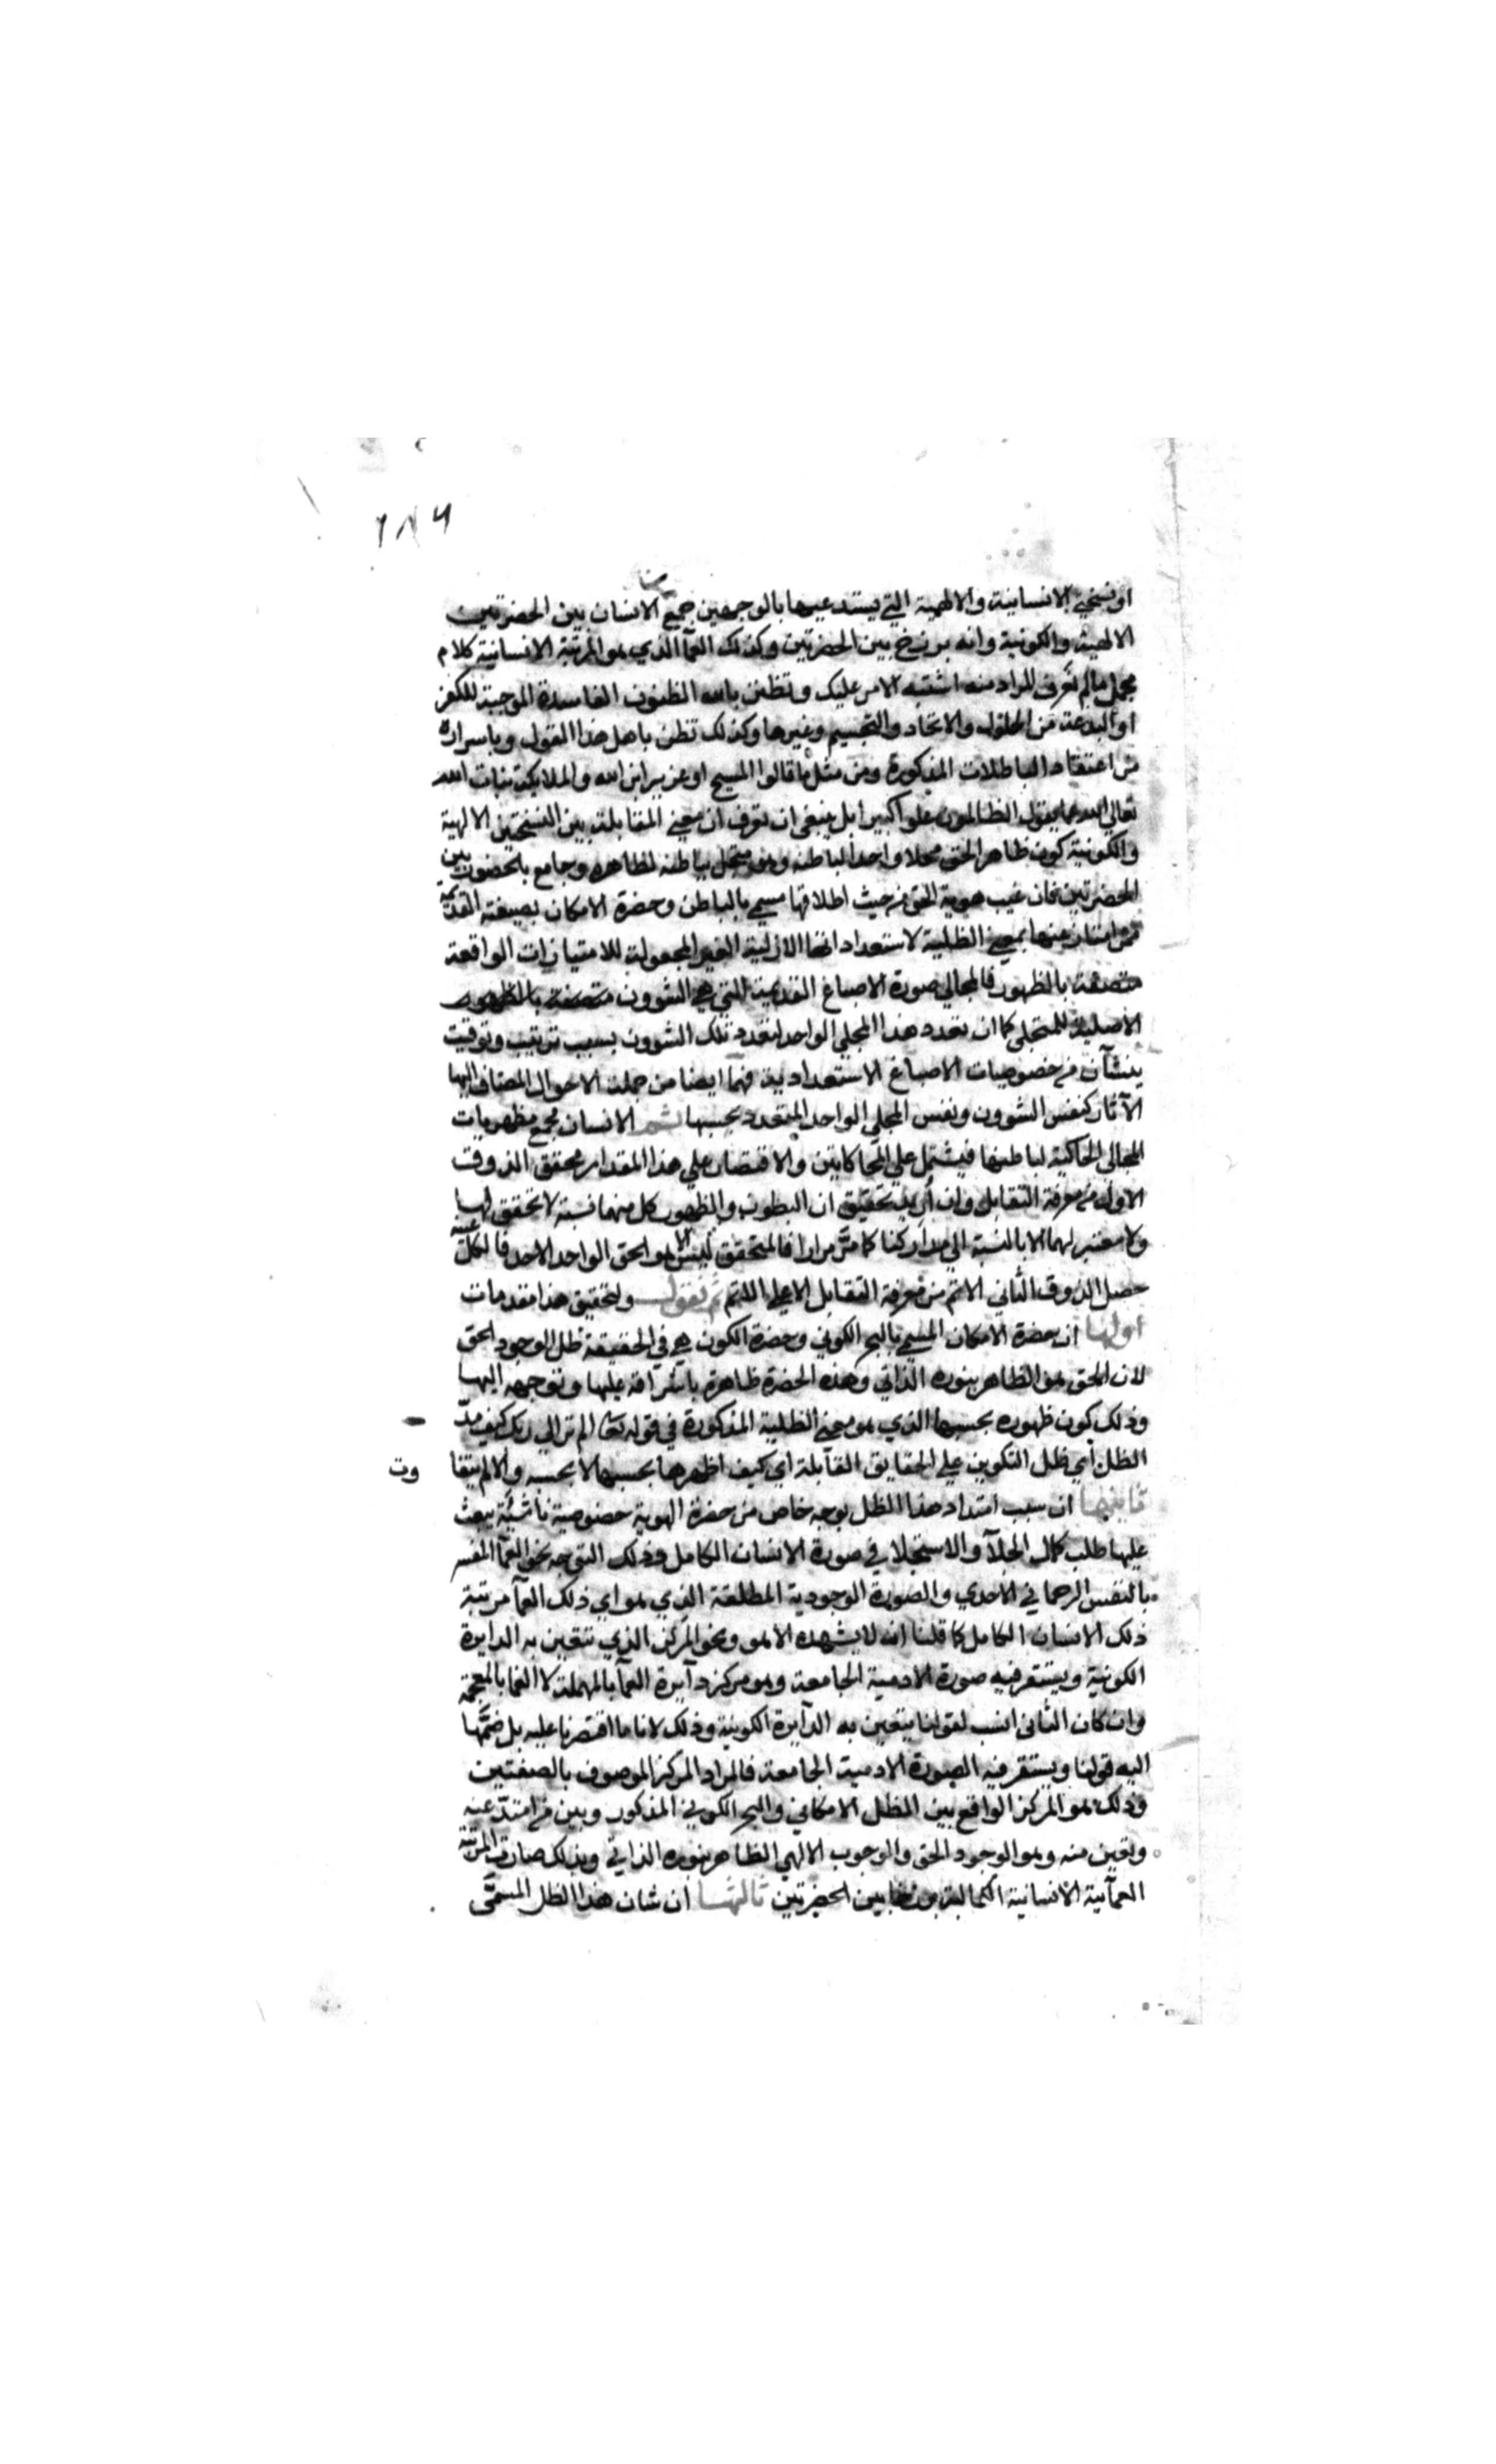 ١٨٩
او نسختي الانسانية والالهية التي يستدعيها بالوجهين جمع الانسان بين الحضرتين
الالهية والكونية وانه برزخ بين الحضرتين وكذلك العمآ الذي هو المرتبة الانسانية كلام
مجمل مالم تعرف المراد منه اشتبه الامر عليك وتظن بالله الظنون الفاسدة الموجبة للكفر
او البدعة من الحلول والاتحاد والتجسيم وغيرها وكذلك تظن باهل هذا القول وباسراره
من اعتقاد الباطلات المذكورة ومن مثل ما قالوا المسيح او عزير ابن الله والملايكة بنات الله
تعالى الله عما يقول الظالمون علوا كبيرا بل ينبغي ان تعرف ان معنى المقابلة بين النسختين الالهية
والكونية كون ظاهر الحق مجلا واحدا لباطنه وهو متجل بباطنه لظاهره وجامع بين
الحضرتين فان غيب هوية الحق من حيث اطلاقها مسمى بالباطن وحضرة الامكان بصبغته القديمة
امتاز عنها بمعنى الظلية لاستعداداتها الازلية الغير المجعولة للامتيازات الواقعة
متصفة بالظهور فالمجالي صورة الاصباغ القديمة التي هي الشوون متصفة بالظهور
الاصلية للمتجلي كما ان تعدد هذا المجلي الواحد لتعدد تلك الشوون بسبب ترتيب وتوقيت
ينشآن من خصوصيات الاصباغ الاستعدادية فهما ايضا من جملة الاحوال المضاف اليها
الآثار كنفس الشوون ونفس المجلي الواحد المتعدد بحسبها ثم الانسان مجمع مظهريات
المجالي الحاكية لباطنها فيشتمل على المحاكاتين والاقتصار على هذا المقدار محقق الذوق
الاول من معرفة التقابل وان أريد تحقيق ان البطون والظهور كل منهما نسبة لا تحقق لها
ولا معتبر لهما الا بالنسبة الى مداركنا كما مرّ مرارا فالمتحقق ليس الا هو الحق الواحد الاحد فالكل عنه
حصل الذوق الثاني الاتم من معرفة التقابل الاعلى ثم نقول ولتحقيق هذا مقدمات
اولها ان حضرة الامكان المسمى بالبحر الكوني وحضرة الكون هي في الحقيقة ظل الوجود الحق
لان الحق هو الظاهر بنوره الذاتي وهذه الحضرة ظاهرة باشراقه عليها وتوجهه اليها
وذلك كون ظهوره بحسبها الذي هو معنى الظلية المذكورة في قوله تعا الم تر الى ربك كيف مدّ
الظل اي ظل التكوين على الحقايق القابلة اي كيف اظهرها بحسبها لا بحسبه والا لم يتفا
وت
ثانيها ان سبب امتداد هذا الظل بوجه خاص من حضرة الهوية خصوصية ناشئة يبعث
عليها طلب كمال الجلآ والاستجلا في صورة الانسان الكامل وذلك التوجه نحو العمآ المفسر
بالنفس الرحماني الاحدي والصورة الوجودية المطلقة الذي هو اي ذلك العمآ مرتبة
ذلك الانسان الكامل كما قلنا انه لا يشهده الا هو ونحو المركز الذي تتعين به الدايرة
الكونية ويستقر فيه صورة الادمية الجامعة وهو مركز دآيرة العمآ بالمهملة لا الغما بالمعجمة
وان كان الثاني انسب لقولنا يتعين به الدآيرة الكونية وذلك لانا ما اقتصرنا عليه بل ضممنا
اليه قولنا ويستقر فيه الصورة الادمية الجامعة فالمراد المركز الموصوف بالصفتين
وذلك هو المركز الواقع بين الظل الامكاني والبحر الكوني المذكور وبين من امتدّ عنه
وتعين منه وهو الوجود الحق والوجوب الالهي الظاهر بنوره الذاتي وبذلك صارت المرتبة
العمآئية الانسانية الكمالية برزخا بين الحضرتين ثالثها ان شان هذا الظل المسمَّى